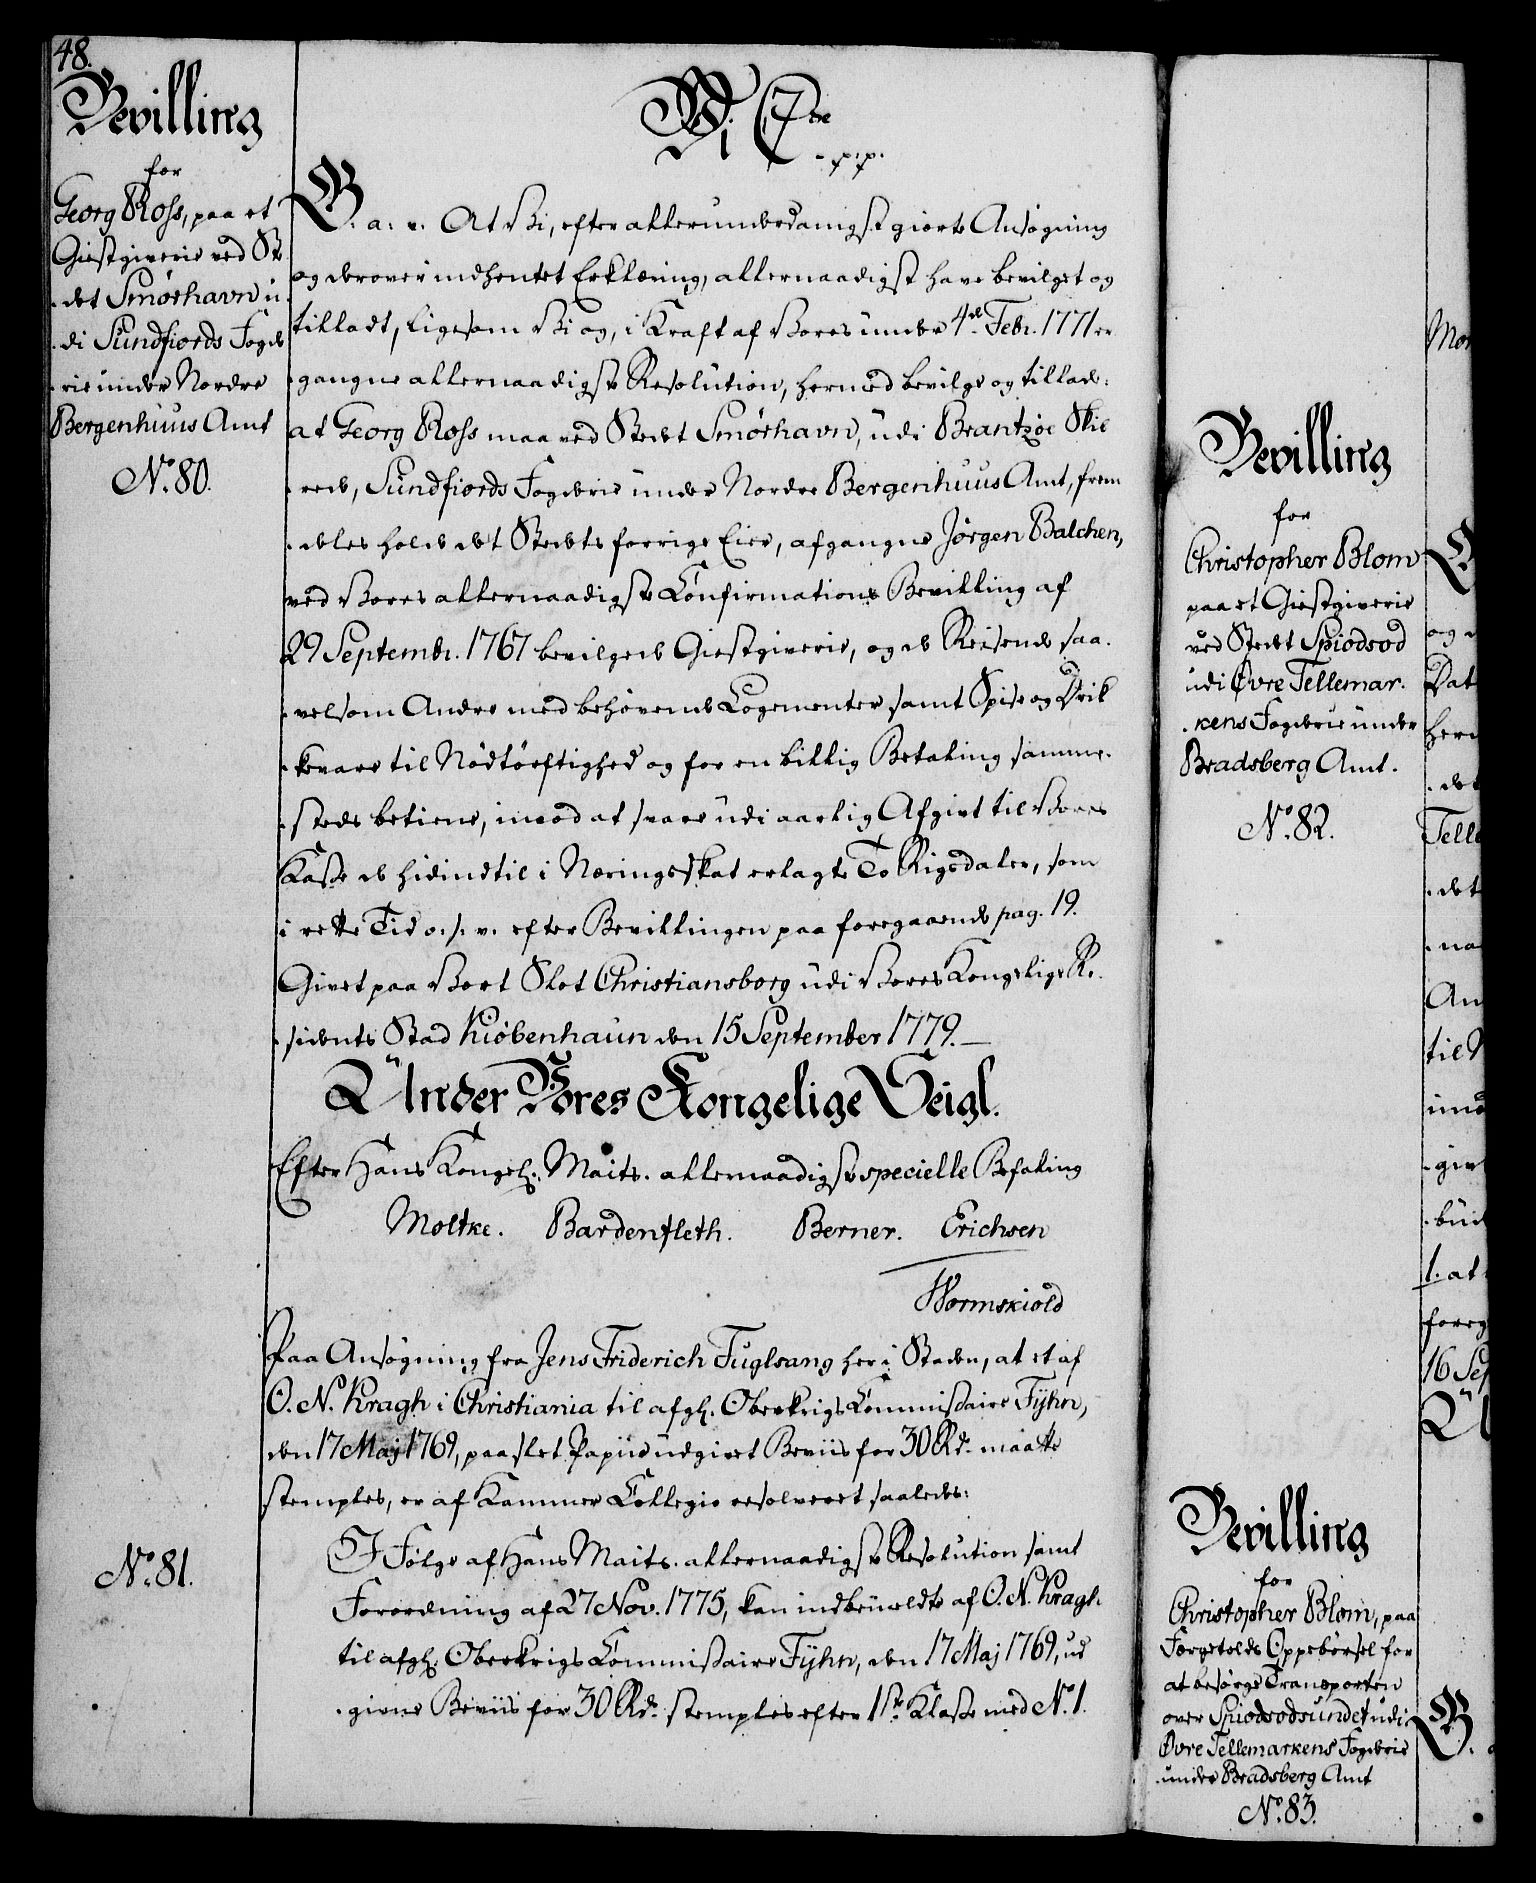 48.
Bevilling
for
Georg Ross, paa et
Giestgiverie ved Ste
-det Smørhavn u-
-di Sundfiords Fogde
-rie under Nordre
Bergenhuus Amt
No. 80.
Vi C 7de
- p.p.
G. a. v. At Vi, efter allerunderdanigst giorte Ansøgning
og derover indhentet Erklæring, allernaadigst have bevilget og
tilladt, ligesom Vi og, i Kraft af Vores under 4de Febr. 1771 er
-gangne allernaadigste Resolution, hermed bevilge og tillade:
at Georg Ross maa ved Stedet Smørhavn, udi Brantzøe Skib
-rede, Sundfiords Fogderie under Nordre Bergenhuus Amt, frem
-deles holde det Stedets forrige Eier, afgangne Jørgen Balchen,
ved Vores allernaadigste Confirmations Bevilling af
29 Septembr. 1767 bevilgede Giestgiverie, og de Reisende saa-
-velsom Andre med behøvende Logementer samt Spise og Drik
-kevare til Nødtørftighed og for en billig Betaling samme-
-steds betiene, imod at svare udi aarlig Afgivt til Vores
Kasse de hidindtil i Næringsskat erlagte To Rigsdaler, som
i rette Tid o. s. v. efter Bevillingen paa foregaaende pag. 19.
Givet paa Vort Slot Christiansborg udi Vores Kongelige Re-
-sidents Stad Kiøbenhaun den 15 September 1779.
Under Vores Kongelige Seigl.
Efter Hans Kongel. Maits. allernaadigste specielle Befaling
Moltke. Bardenfleth. Berner. Erichsen
Wormskiold
Paa Ansøgning fra Jens Friderich Fuglsang her i Staden, at et af
O. N. Kragh i Christiania til afgl. Oberkrigs Commissaire Fyhn,
den 17 Maj 1769, paa slet Papiir udgivet Beviis for 30 Rd. maatte
stemples, er af Kammer Collegio resolveret saaledes:
No. 81.
I Følge af Hans Maits. allernaadigste Resolution samt
Forordning af 27 Nov. 1775, kan indbemeldte af O. N. Kragh
til afgl. Oberkrigs Commissaire Fyhn, den 17 Maj 1769, ud
-givne Beviis for 30 Rd. stemples efter 1ste Klasse med No. 1.
Bevilling
for
Christopher Blom
paa et Giestgiverie
ved Stedet Spiodsod
udi Øvre Tellemar-
-kens Fogderie under
Bradsberg Amt.
No. 82.
Bevilling
for
Christopher Blom, paa
Færgetolds Oppebørsel for
at besørge Transporten
over Spiodsodsundet udi
Øvre Tellemarkens Fogderie
under Bradsberg Amt
No. 83.